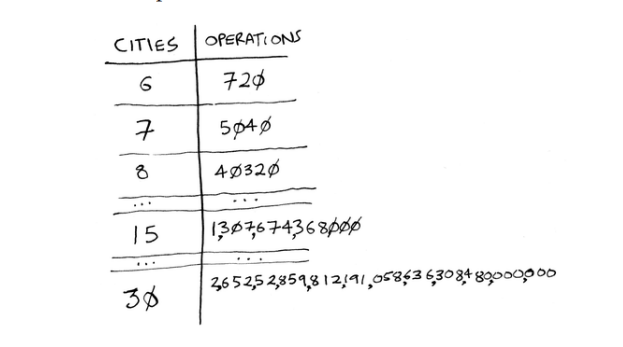 CITIES OPERATIONS
6 720
7 5040
8 40320
... ...
15 1,307,674,368000
... ...
30 2,652,52,859,812,191,058,636,308,480,000,000